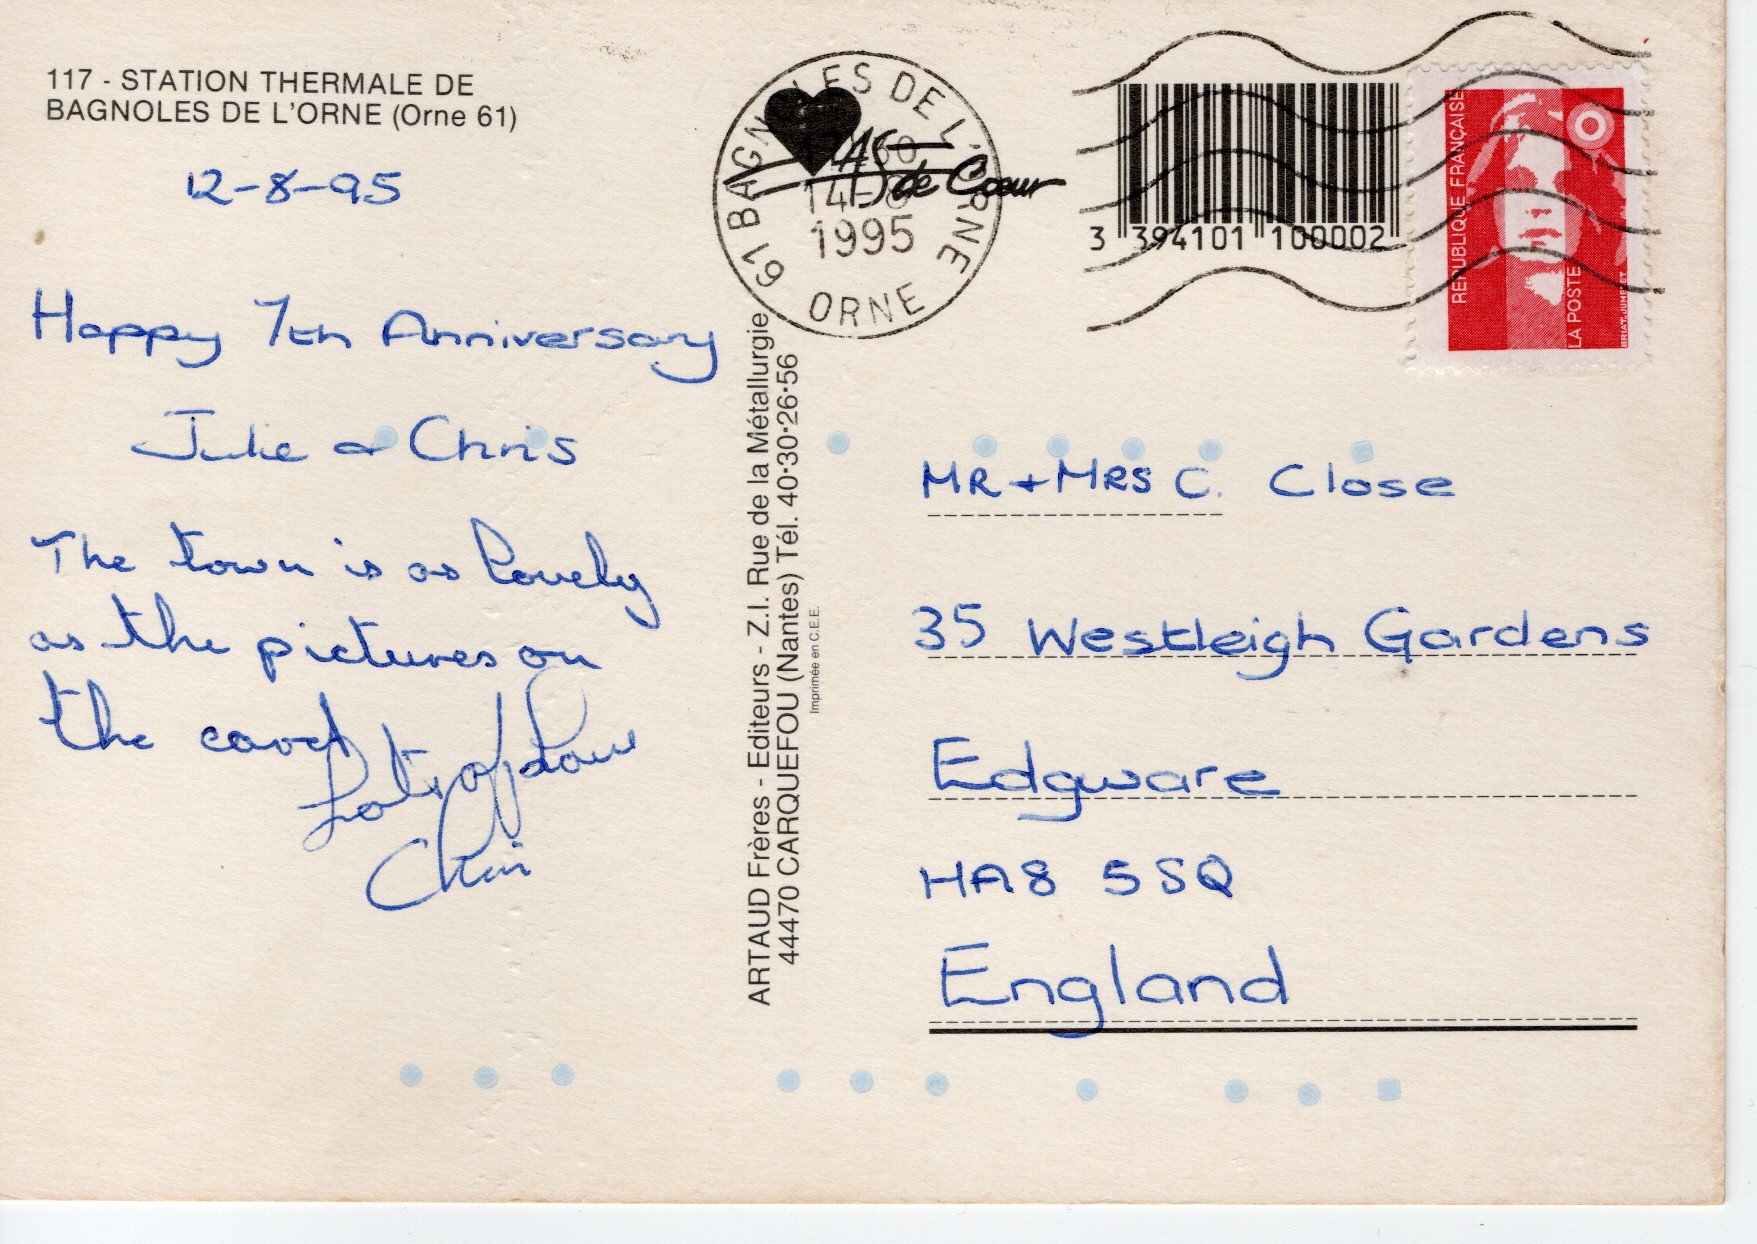 117 - STATION THERMALE DE
BAGNOLES DE L'ORNE (Orne 61)
12-8-95
Happy 7th Anniversary
Julie & Chris
The town is as lovely
as the pictures on
the card
Lots of love
ARTAUD Frères - Editeurs - Z.I. Rue de la Métallurgie
44470 CARQUEFOU (Nantes) Tél. 40·30·26·56
Imprimée en C.E.E.
61 BAGNOLES DE L'ORNE
14-8
1995
ORNE
AS de Cœur
3 394101 100002
REPUBLIQUE FRANÇAISE
LA POSTE
BRIAT-JUMELET
MR + MRS C. Close
35 Westleigh Gardens
Edgware
HA8 5SQ
England